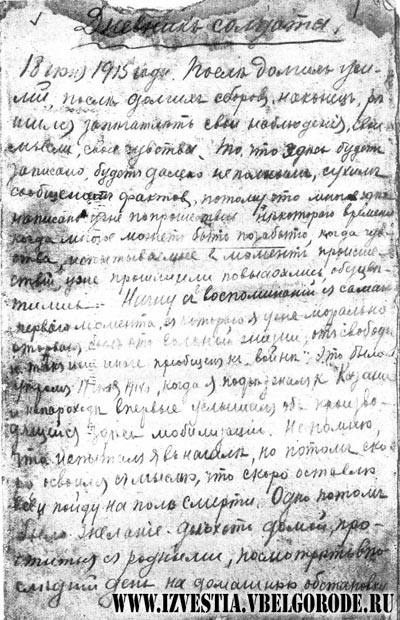 Дневникъ солдата.
18 1915 года. Послѣ долгихъ уси-
лій, послѣ долгихъ сборовъ, наконецъ, рѣ
шился запечатлѣть свои наблюденія, свои
мысли, свои чувства. То, что здѣсь будетъ
записано, будетъ далеко не полнымъ, сухимъ
сообщеніемъ фактовъ, потому что многое
написано уже по прошествіи нѣкотораго времени
когда многое можетъ быть позабыто, когда чув
ства, испытываемые в моментъ происше-
ствій, уже прошли или повысохлись, обсцвѣ-
тились. Начну съ воспоминаній съ самаго
перваго момента, съ котораго я уже морально
оторвался отъ вольной жизни, отъ свободы
и такъ или иначе пріобщился къ войнѣ. Это было
утромъ 1914, когда я подъѣзжалъ к Казани
и на пароходѣ впервые услышалъ объ произво-
дящейся здѣсь мобилизаціи. Не помню,
что испыталъ я вначалѣ, но потомъ ско
ро освоился съ мыслью, что скоро оставлю
всё и пойду на поле смерти. Одно потомъ
было желаніе: доѣхать домой, про-
ститься съ родными, посмотрѣть въ по-
слѣдній день на домашнюю обстановку
WWW.IZVESTIA.VBELGORODE.RU